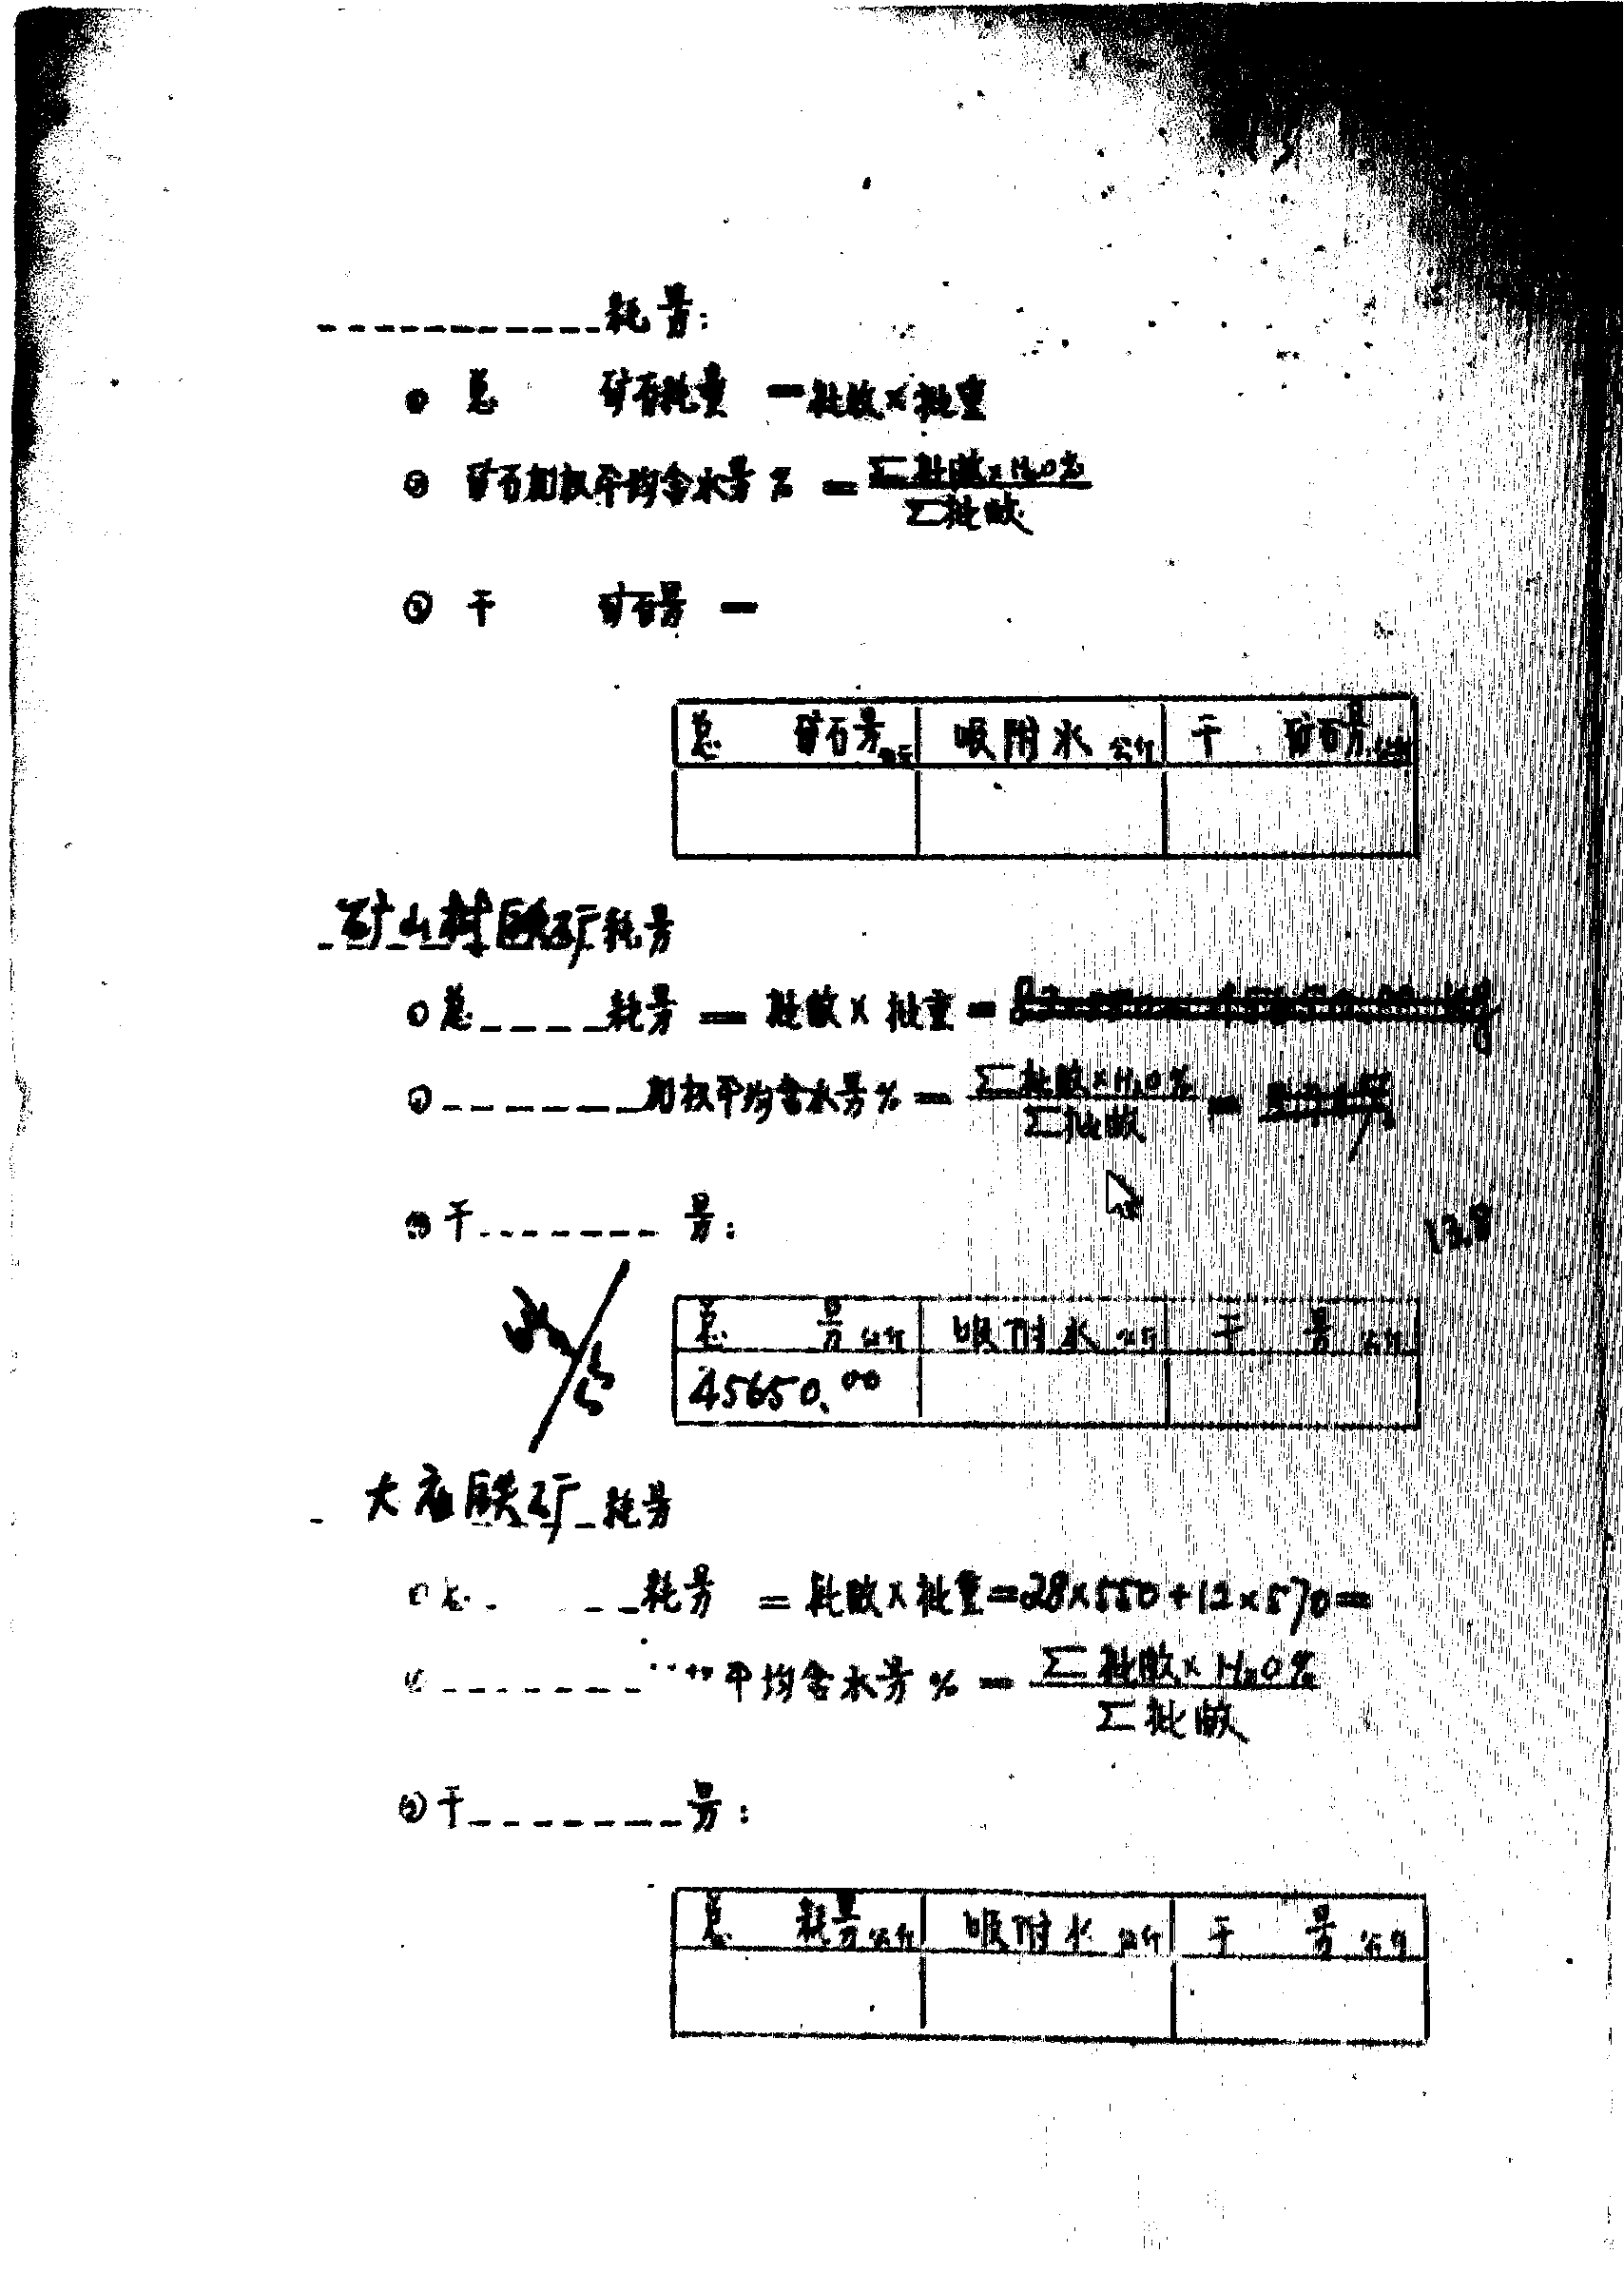 耗量:
① 总 矿石耗量 = 批数×批重
② 矿石加权平均含水量% = Σ批数×H₂O% / Σ批数
③ 干 矿石量 =
总 矿石量 吸附水 公斤 干 矿石量 公斤
矿山村铁矿耗量
① 总 耗量 = 批数×批重 =
② 加权平均含水量% = Σ批数×H₂O% / Σ批数 =
③ 干 量:
12.8
总 量 公斤 吸附水 公斤 干 量 公斤
45650.00
大 铁矿 耗量
耗量 = 批数×批重=28×550+12×570=
平均含水量% = Σ批数×H₂O% / Σ批数
③ 干 量:
总 耗量 公斤 吸附水 公斤 干 量 公斤